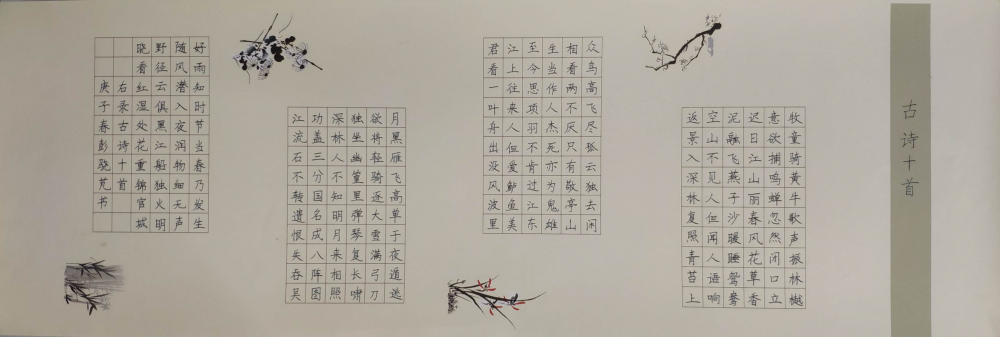 古诗十首
牧童骑黄牛歌声振林樾
意欲捕鸣蝉忽然闭口立
迟日江山丽春风花草香
泥融飞燕子沙暖睡鸳鸯
空山不见人但闻人语响
返景入深林复照青苔上
众鸟高飞尽孤云独去闲
相看两不厌只有敬亭山
生当作人杰死亦为鬼雄
至今思项羽不肯过江东
江上往来人但爱鲈鱼美
君看一叶舟出没风波里
月黑雁飞高单于夜遁逃
欲将轻骑逐大雪满弓刀
独坐幽篁里弹琴复长啸
深林人不知明月来相照
功盖三分国名成八阵图
江流石不转遗恨失吞吴
好雨知时节当春乃发生
随风潜入夜润物细无声
野径云俱黑江船独火明
晓看红湿处花重锦官城
右录古诗十首
庚子春彭骁芃书